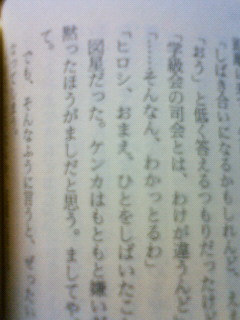 「しばき合いになるかもしれんど、え
「おう」と低く答えるつもりだったけど
「学級会の司会とは、わけが違うんど
「……そんなん、わかっとるわ」
「ヒロシ、おまえ、ひとをしばいたこ
図星だった。ケンカはもともと嫌いだ
黙ったほうがましだと思う。ましてや
て。
でも、そんなふうに言うと、ぜったい